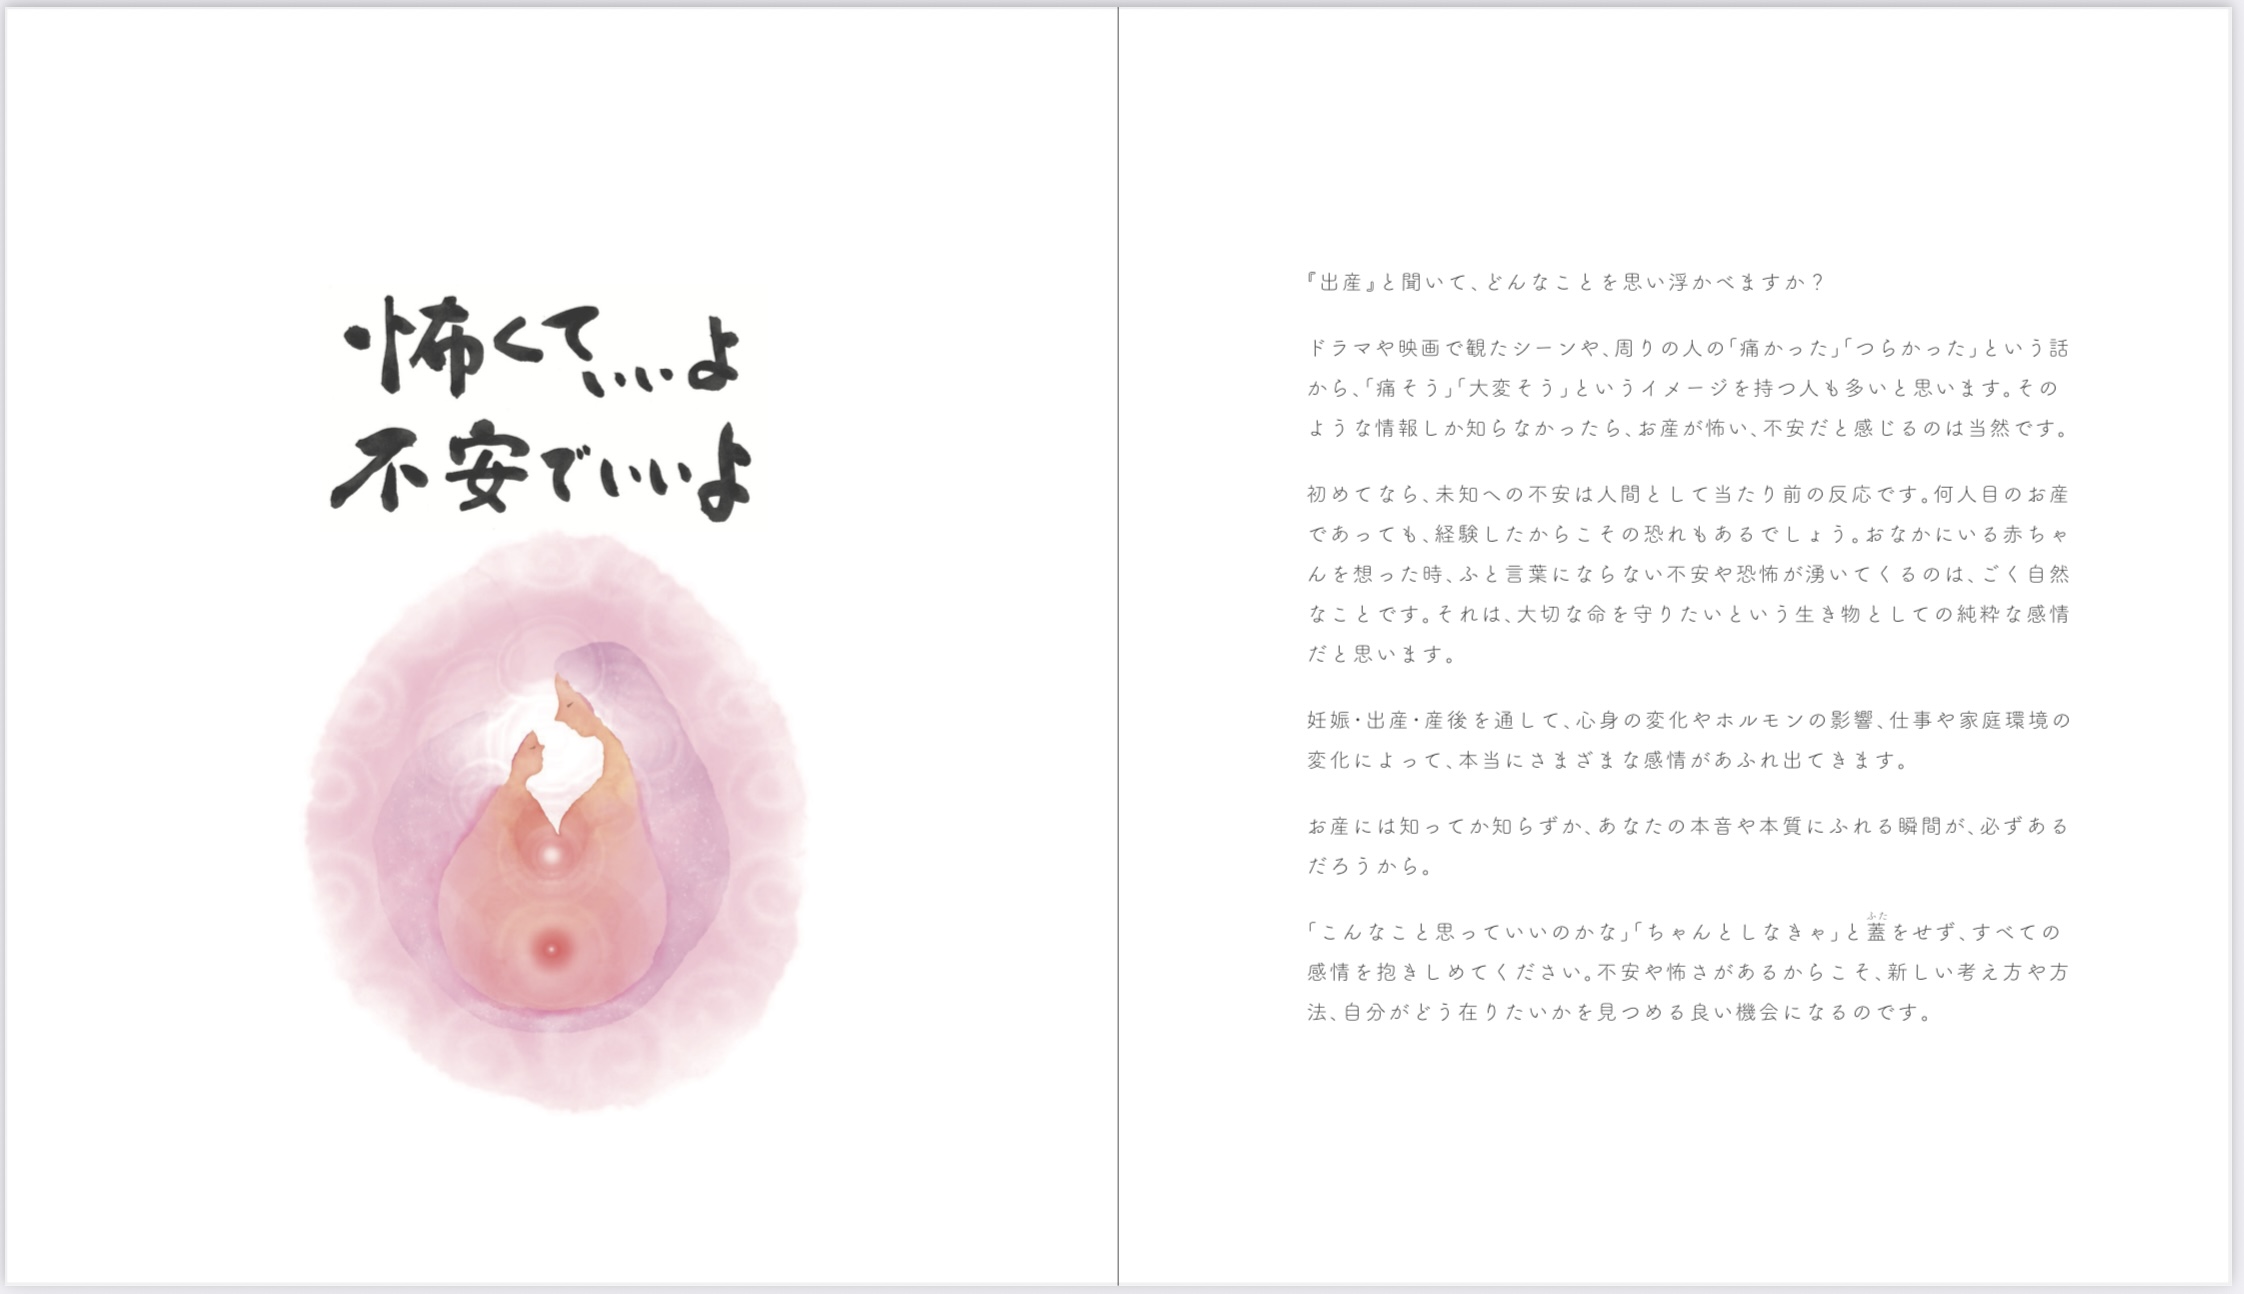 怖くていいよ
不安でいいよ
『出産』と聞いて、どんなことを思い浮かべますか？
ドラマや映画で観たシーンや、周りの人の「痛かった」「つらかった」という話
から、「痛そう」「大変そう」というイメージを持つ人も多いと思います。その
ような情報しか知らなかったら、お産が怖い、不安だと感じるのは当然です。
初めてなら、未知への不安は人間として当たり前の反応です。何人目のお産
であっても、経験したからこその恐れもあるでしょう。おなかにいる赤ちゃ
んを想った時、ふと言葉にならない不安や恐怖が湧いてくるのは、ごく自然
なことです。それは、大切な命を守りたいという生き物としての純粋な感情
だと思います。
妊娠・出産・産後を通して、心身の変化やホルモンの影響、仕事や家庭環境の
変化によって、本当にさまざまな感情があふれ出てきます。
お産には知ってか知らずか、あなたの本音や本質にふれる瞬間が、必ずある
だろうから。
ふた
「こんなこと思っていいのかな」「ちゃんとしなきゃ」と蓋をせず、すべての
感情を抱きしめてください。不安や怖さがあるからこそ、新しい考え方や方
法、自分がどう在りたいかを見つめる良い機会になるのです。